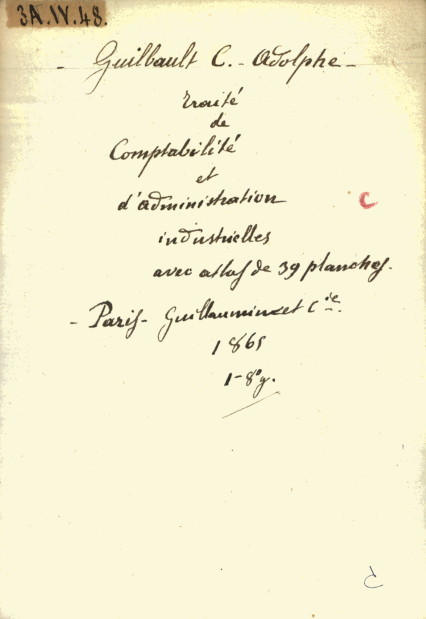 3A.IV.48.
- Guilbault C. - Adolphe -
Traité
de
Comptabilité
et
d'administration
C
industrielles
avec atlas de 39 planches.
- Paris - Guillaumin et Cie.
1865
1-8º g.